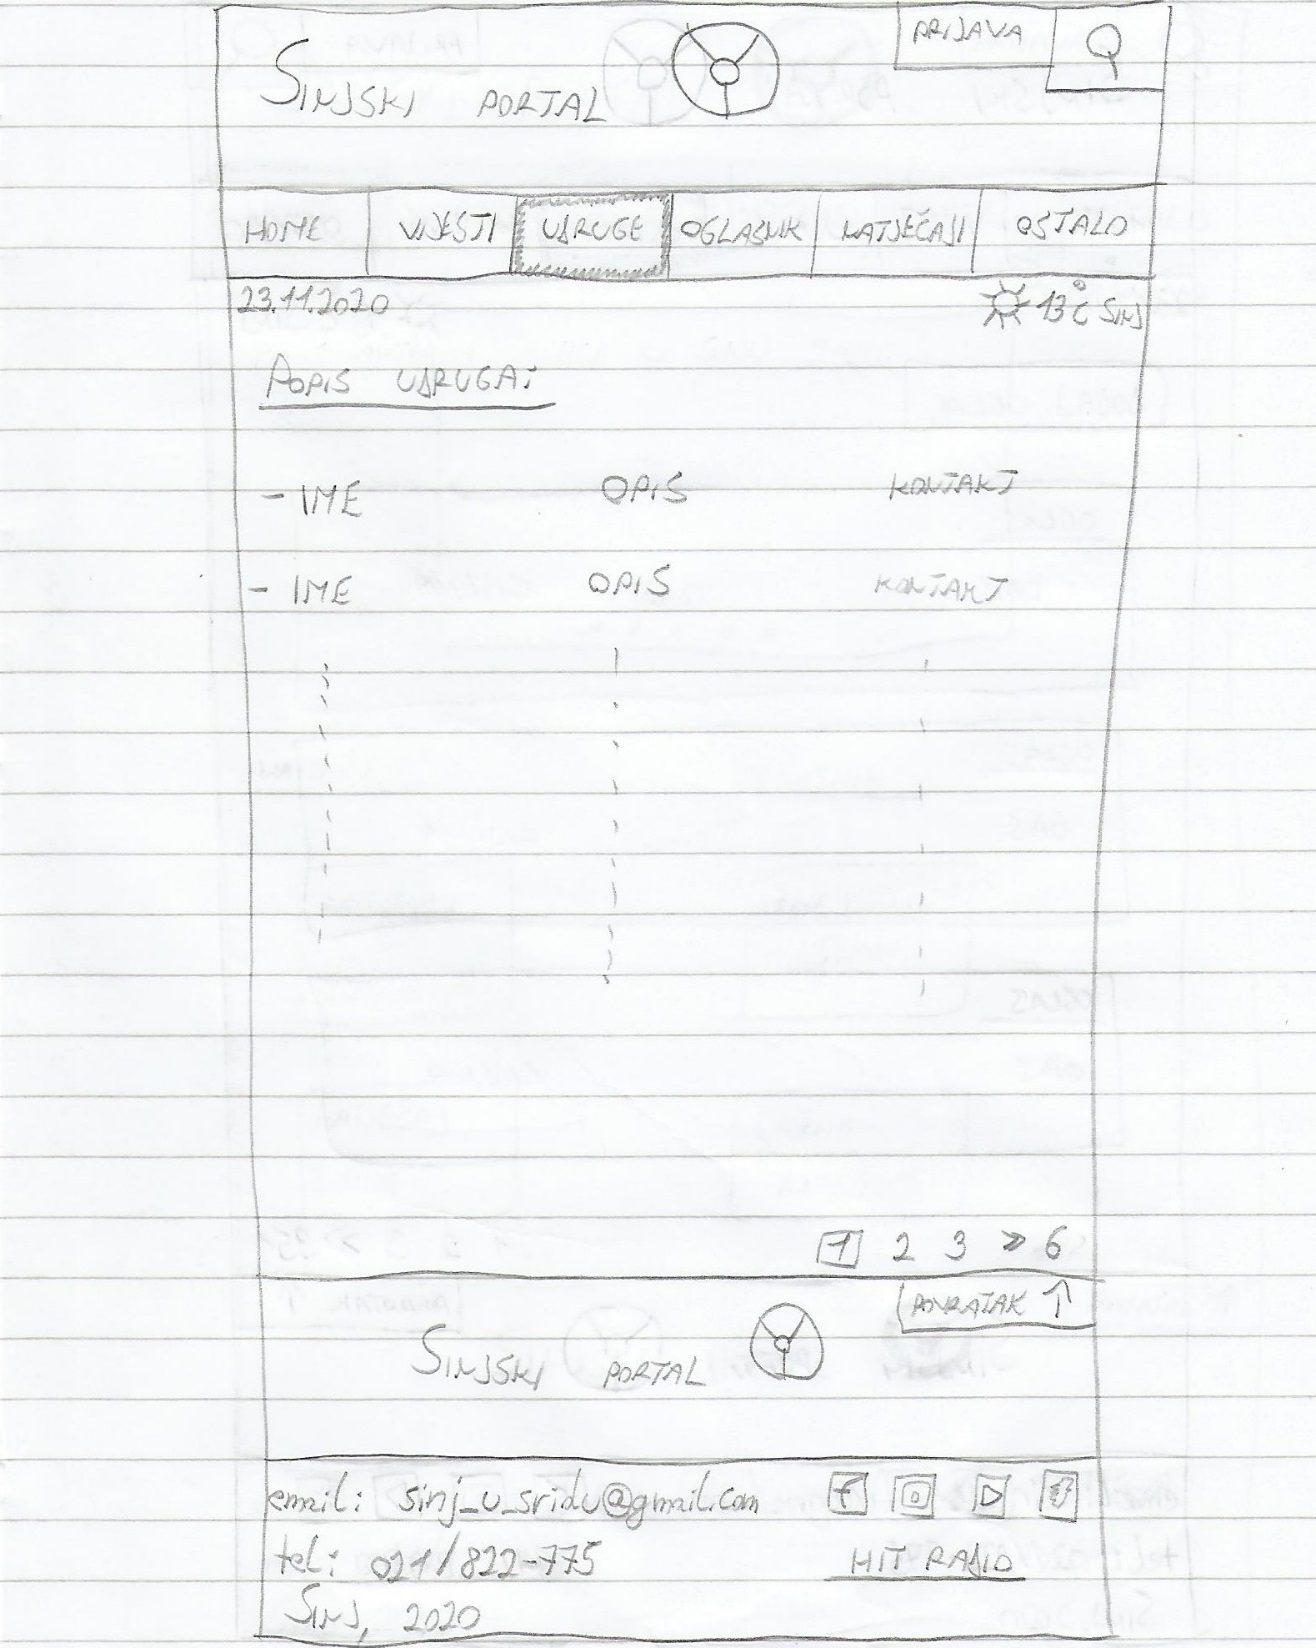 SINJSKI PORTAL
PRIJAVA
HOME VIJESTI UDRUGE OGLASNIK NATJEČAJI OSTALO
23.11.2020
13°C SINJ
POPIS UDRUGA:
- IME OPIS KONTAKT
- IME OPIS KONTAKT
1 2 3 » 6
POVRATAK ↑
SINJSKI PORTAL
email: sinj_u_sridu@gmail.com
tel: 021/822-775
HIT RADIO
SINJ, 2020